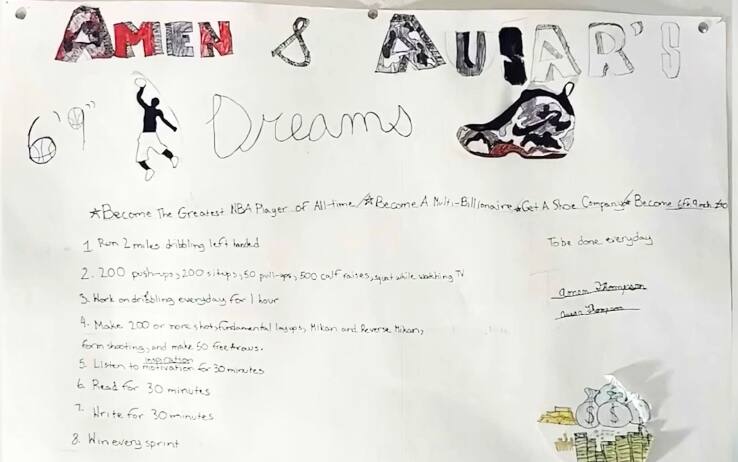 AMEN & AUSAR'S
6'9" Dreams
★Become The Greatest NBA Player of All-time/★Become A Multi-Billionaire★Get A Shoe Company★Become 6ft 9inch
1. Run 2 miles dribbling left handed
To be done everyday
2. 200 push-ups, 200 situps, 50 pull-ups, 500 calf raises, squat while watching TV
3. Work on dribbling everyday for 1 hour
Amen Thompson
Ausar Thompson
4. Make 200 or more shots, fundamental layups, Mikan and Reverse Mikan,
form shooting, and make 50 free throws.
inspiration
5. Listen to motivation for 30 minutes
6. Read for 30 minutes
7. Write for 30 minutes
8. Win every sprint
$ $